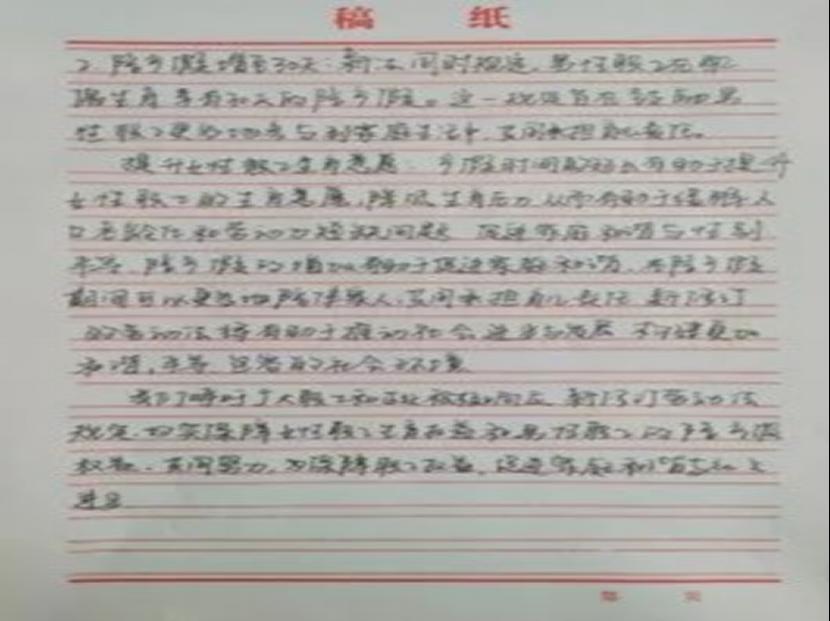 稿 纸
2. 陪产假增至30天：新法同时规定，男性职工在配
偶生育享有30天的陪产假。这一规定旨在鼓励男
性职工更多地参与到家庭生活中，共同承担育儿责任。
提升女性职工生育意愿：产假时间的有助于提升
女性职工的生育意愿，降低生育压力，从而有助于缓解人
口老龄化和劳动力短缺问题 促进家庭和谐与性别
平等，陪产假的增加有助于促进家庭和谐，在陪产假
期间可以更多地陪伴家人，共同承担育儿责任 新修订
的劳动法将有助于推动社会进步与发展 构建更加
和谐，平等，包容的社会环境
我们呼吁广大职工和企业积极响应 新修订劳动法
规定，切实保障女性职工生育权益和男性职工的陪产假
权益，共同努力，为保障职工权益，促进家庭和谐
进步
第 页